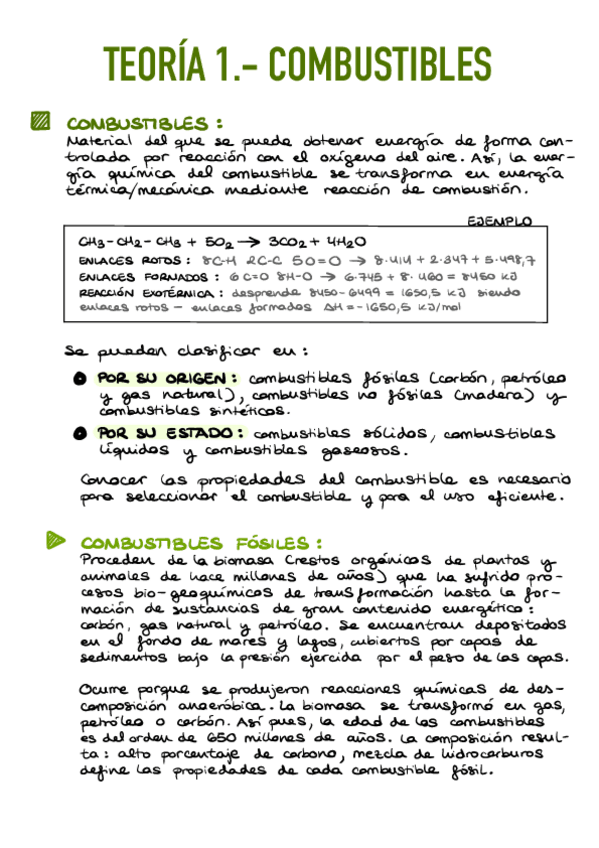 TEORÍA 1.- COMBUSTIBLES
COMBUSTIBLES :
Material del que se puede obtener energía de forma con-
trolada por reacción con el oxígeno del aire. Así, la ener-
gía química del combustible se transforma en energía
térmica/mecánica mediante reacción de combustión.
EJEMPLO
CH3-CH2-CH3 + 5O2 → 3CO2 + 4H2O
ENLACES ROTOS : 8C-H 2C-C 5O=O → 8·414 + 2·347 + 5·498,7
ENLACES FORMADOS : 6 C=O 8H-O → 6·745 + 8·460 = 8450 KJ
REACCIÓN EXOTÉRMICA : desprende 8450-6499 = 1650,5 KJ siendo
enlaces rotos - enlaces formados ΔH = -1650,5 KJ/mol
Se pueden clasificar en :
POR SU ORIGEN : combustibles fósiles (carbón, petróleo
y gas natural), combustibles no fósiles (madera) y
combustibles sintéticos.
POR SU ESTADO : combustibles sólidos, combustibles
líquidos y combustibles gaseosos.
Conocer las propiedades del combustible es necesario
para seleccionar el combustible y para el uso eficiente.
COMBUSTIBLES FÓSILES :
Proceden de la biomasa (restos orgánicos de plantas y
animales de hace millones de años) que ha sufrido pro-
cesos bio-geoquímicos de transformación hasta la for-
mación de sustancias de gran contenido energético :
carbón, gas natural y petróleo. Se encuentran depositados
en el fondo de mares y lagos, cubiertos por capas de
sedimentos bajo la presión ejercida por el peso de las capas.
Ocurre porque se produjeron reacciones químicas de des-
composición anaeróbica. La biomasa se transformó en gas,
petróleo o carbón. Así pues, la edad de los combustibles
es del orden de 650 millones de años. La composición resul-
ta : alto porcentaje de carbono, mezcla de hidrocarburos
define las propiedades de cada combustible fósil.